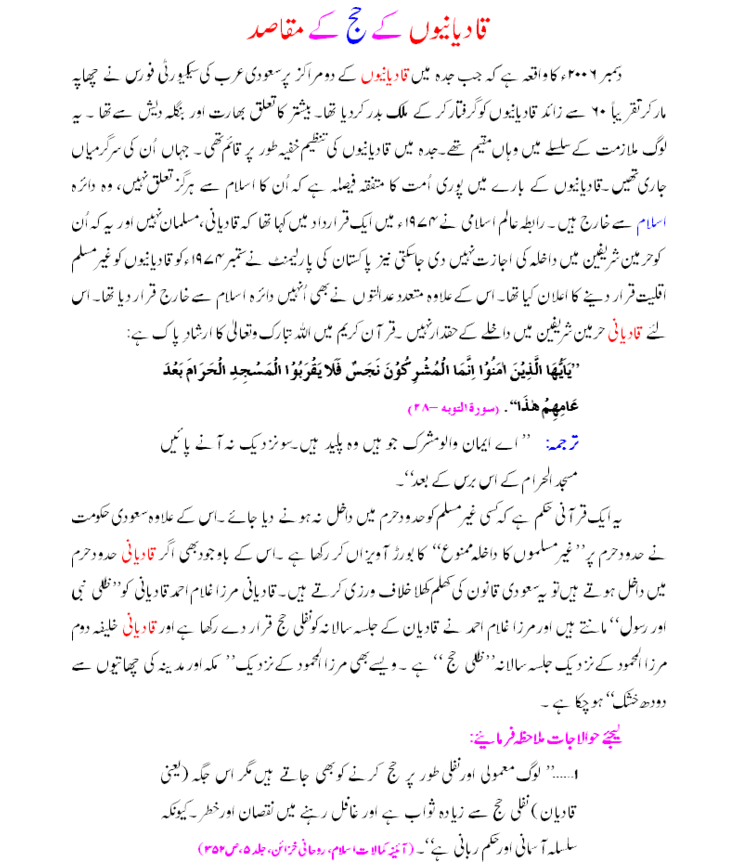 قادیانیوں کے حج کے مقاصد
دسمبر ۲۰۰۶ء کا واقعہ ہے کہ جب جدہ میں قادیانیوں کے دو مراکز پر سعودی عرب کی سیکیورٹی فورس نے چھاپہ
مار کر تقریباً ۶۰ سے زائد قادیانیوں کو گرفتار کر کے ملک بدر کر دیا تھا۔ بیشتر کا تعلق بھارت اور بنگلہ دیش سے تھا ۔ یہ
لوگ ملازمت کے سلسلے میں وہاں مقیم تھے۔ جدہ میں قادیانیوں کی تنظیم خفیہ طور پر قائم تھی۔ جہاں اُن کی سرگرمیاں
جاری تھیں۔ قادیانیوں کے بارے میں پوری اُمت کا متفقہ فیصلہ ہے کہ اُن کا اسلام سے ہرگز تعلق نہیں، وہ دائرہ
اسلام سے خارج ہیں۔ رابطہ عالم اسلامی نے ۱۹۷۴ء میں ایک قرارداد میں کہا تھا کہ قادیانی، مسلمان نہیں اور یہ کہ اُن
کو حرمین شریفین میں داخلہ کی اجازت نہیں دی جاسکتی نیز پاکستان کی پارلیمنٹ نے ستمبر ۱۹۷۴ء کو قادیانیوں کو غیر مسلم
اقلیت قرار دینے کا اعلان کیا تھا۔ اس کے علاوہ متعدد عدالتوں نے بھی اُنہیں دائرہ اسلام سے خارج قرار دیا تھا۔ اس
لئے قادیانی حرمین شریفین میں داخلے کے حقدار نہیں ۔ قرآن کریم میں اللہ تبارک وتعالیٰ کا ارشادِ پاک ہے:
’’یٰاَیُّھَا الَّذِیْنَ اٰمَنُوْا اِنَّمَا الْمُشْرِکُوْنَ نَجَسٌ فَلَا یَقْرَبُوْا الْمَسْجِدِ الْحَرَامَ بَعْدَ
عَامِھِمْ ھٰذَا‘‘۔ (سورۃ التوبہ –۲۸)
ترجمہ: ’’ اے ایمان والو مشرک جو ہیں وہ پلید ہیں۔ سو نزدیک نہ آنے پائیں
مسجد الحرام کے اس برس کے بعد‘‘۔
یہ ایک قرآنی حکم ہے کہ کسی غیر مسلم کو حدود حرم میں داخل نہ ہونے دیا جائے۔ اس کے علاوہ سعودی حکومت
نے حدود حرم پر ’’غیر مسلموں کا داخلہ ممنوع‘‘ کا بورڑ آویزاں کر رکھا ہے ۔ اس کے باوجود بھی اگر قادیانی حدود حرم
میں داخل ہوتے ہیں تو یہ سعودی قانون کی کھلم کھلا خلاف ورزی کرتے ہیں۔ قادیانی مرزا غلام احمد قادیانی کو ’’ظلی نبی
اور رسول‘‘ مانتے ہیں اور مرزا غلام احمد نے قادیان کے جلسہ سالانہ کو نفلی حج قرار دے رکھا ہے اور قادیانی خلیفہ دوم
مرزا المحمود کے نزدیک جلسہ سالانہ ’’ظلی حج ‘‘ ہے ۔ ویسے بھی مرزا المحمود کے نزدیک ’’ مکہ اور مدینہ کی چھاتیوں سے
دودھ خشک‘‘ ہو چکا ہے ۔
لیجئے حوالا جات ملاحظہ فرمائیے:
۱......’’ لوگ معمولی اور نفلی طور پر حج کرنے کو بھی جاتے ہیں مگر اس جگہ (یعنی
قادیان) نفلی حج سے زیادہ ثواب ہے اور غافل رہنے میں نقصان اور خطر۔ کیونکہ
سلسلہ آسمانی اور حکم ربانی ہے‘‘۔ (آئینہ کمالات اسلام، روحانی خزائن، جلد ۵، ص ۳۵۲)